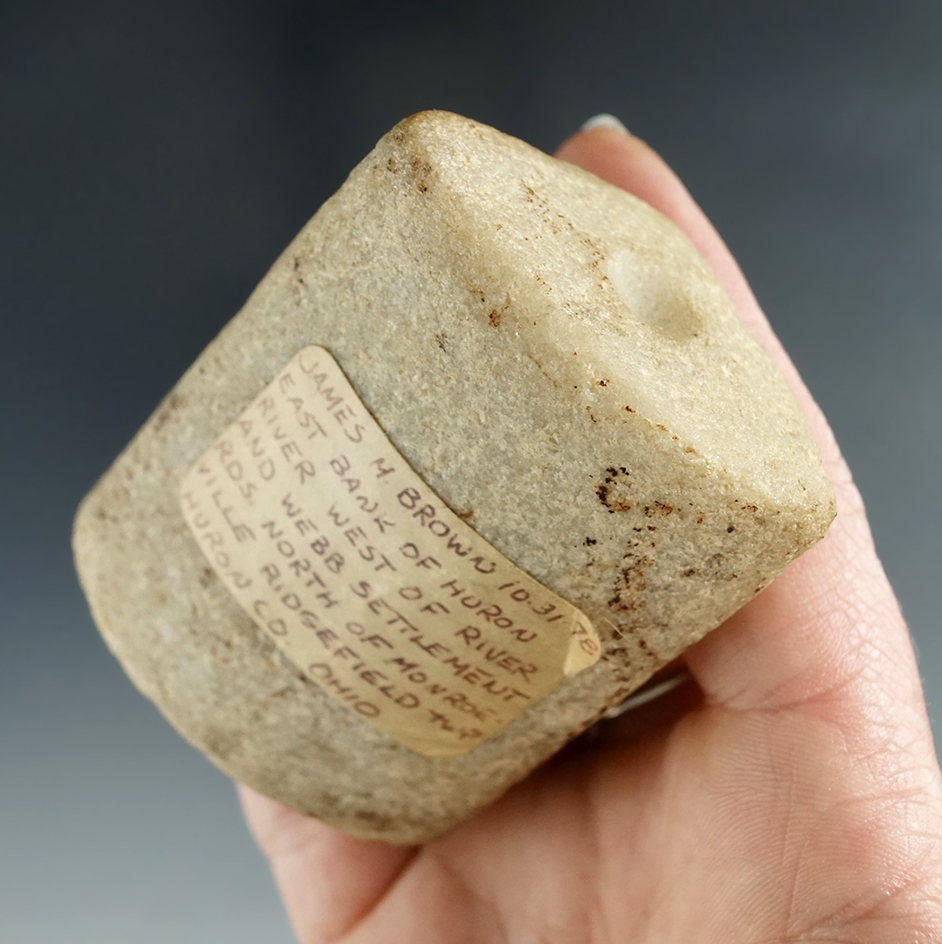 JAMES M. BROWN 10.31 78
EAST BANK OF HURON
RIVER WEST OF RIVER
AND WEBB SETTLEMENT
RDS. NORTH OF MONROE-
VILLE RIDGEFIELD TWP
HURON CO OHIO